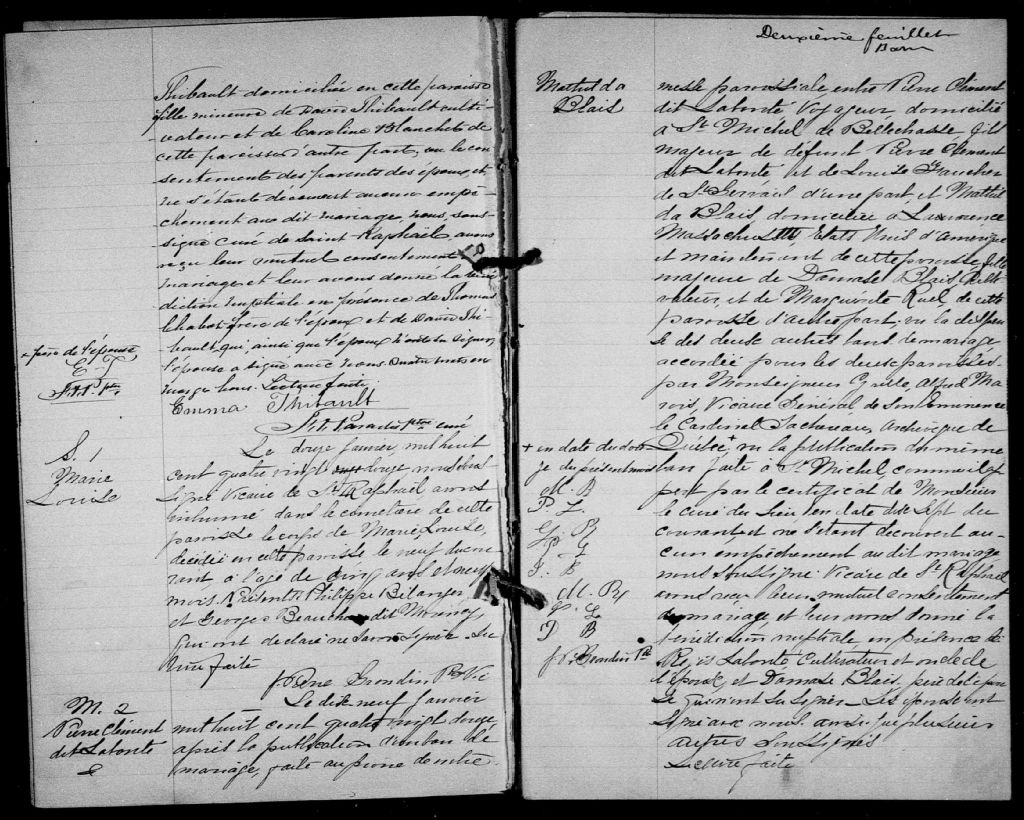 Thibault domiciliée en cette paroisse
fille mineure de David Thibault culti-
vateur et de Caroline Blanchet de
cette paroisse d'autre part, vu le con-
sentement des parents des époux, et
ne s'étant découvert aucun empê-
chement au dit mariage, nous, sous-
signé curé de Saint Raphaël avons
reçu leur mutuel consentement
mariage et leur avons donné la béné
diction nuptiale en présence de Thomas
Chabot frère de l'époux et de David Thi-
bault, qui, ainsi que l'époux n'ont su signer,
l'épouse a signé avec nous. Quatre mots en
marge bons. Lecture faite
+ père de l'épouse
E. T.
Emma Thibault
Ptre curé
S. 1
Marie
Louise
Le douze janvier mil huit
cent quatre vingt douze nous sous
signé Vicaire de St Raphaël avons
inhumé dans le cimetière de cette
paroisse le corps de Marie Louise,
décédée en cette paroisse le neuf du cou-
rant à l'âge de cinq ans et neuf
mois. Présents Philippe Bélanger
et Georges Beauchamp dit
qui ont déclaré ne savoir signer. Lec
ture faite
Pierre Grondin Ptre Vic
M. 2
Pierre Clément
dit Labonté
&
Le dix neuf janvier
mil huit cent quatre vingt douze,
après la publication d'un ban de
mariage, faite au prône de notre
Deuxième feuillet
Mathilda
Blais
messe paroissiale entre Pierre Clément
dit Labonté Voyageur domicilié
à St Michel de Bellechasse, fils
majeur de défunt Pierre Clément
dit Labonté et de Louise Gaucher
de St Gervais d'une part, et Mathil
da Blais domiciliée à Lawrence
Massachusetts, Etats Unis d'Amérique
et maintenant de cette paroisse, fille
majeure de Damase Blais Culti
vateur, et de Marguerite Ruel de cette
paroisse d'autre part. vu la dispen
se des deux autres bans de mariage
accordée pour les deux paroisses
par Monseigneur Cyrille Alfred Ma
rois, Vicaire Général de Son Eminence
le Cardinal Taschereau, Archevêque de
Québec + vu la publication du même
ban faite à St Michel, comme il ap
pert par le certificat de Monsieur
le curé du lieu en date dix sept du
courant et ne s'étant découvert au-
cun empêchement au dit mariage
nous soussigné Vicaire de St Raphaël
avons reçu leur mutuel consentement
de mariage et leur avons donné la
bénédiction nuptiale en présence de
Régis Labonté Cultivateur, et oncle de
l'époux, et Damase Blais, père de l'épou
se qui n'ont su signer. Les époux ont
signé avec nous ainsi que plusieurs
autres soussignés
Lecture faite
+ en date du dou
ze du présent mois
M. B
P. L.
P. G
P. B
M. B
P. L
P B
P. Grondin Ptre